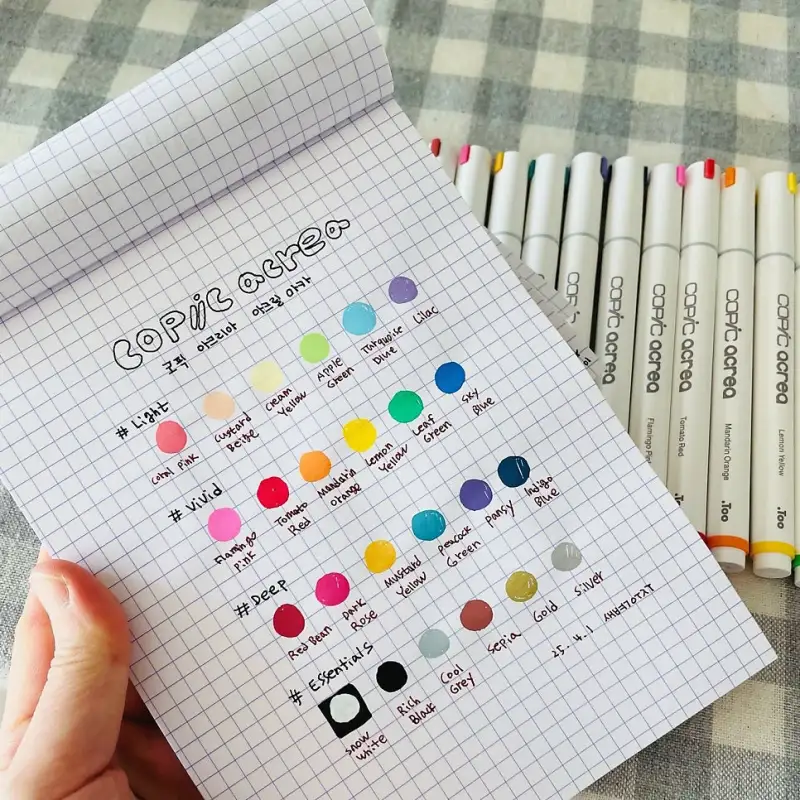 COPiC acrea
코픽 아크리아 아크릴 마카
# Light
Coral Pink
Custard Beige
Cream Yellow
Apple Green
Turquoise Blue
Lilac
# Vivid
Flamingo Pink
Tomato Red
Mandarin Orange
Lemon Yellow
Leaf Green
Sky Blue
# Deep
Red Bean
Dark Rose
Mustard Yellow
Peacock Green
Pansy
Indigo Blue
# Essentials
Snow White
Rich Black
Cool Grey
Sepia
Gold
Silver
25. 4. 1
COPIC
COPIC acrea
COPIC acrea
Flamingo Pink
COPIC acrea
Tomato Red
.Too
COPIC acrea
Mandarin Orange
.Too
COPIC acrea
Lemon Yellow
.Too